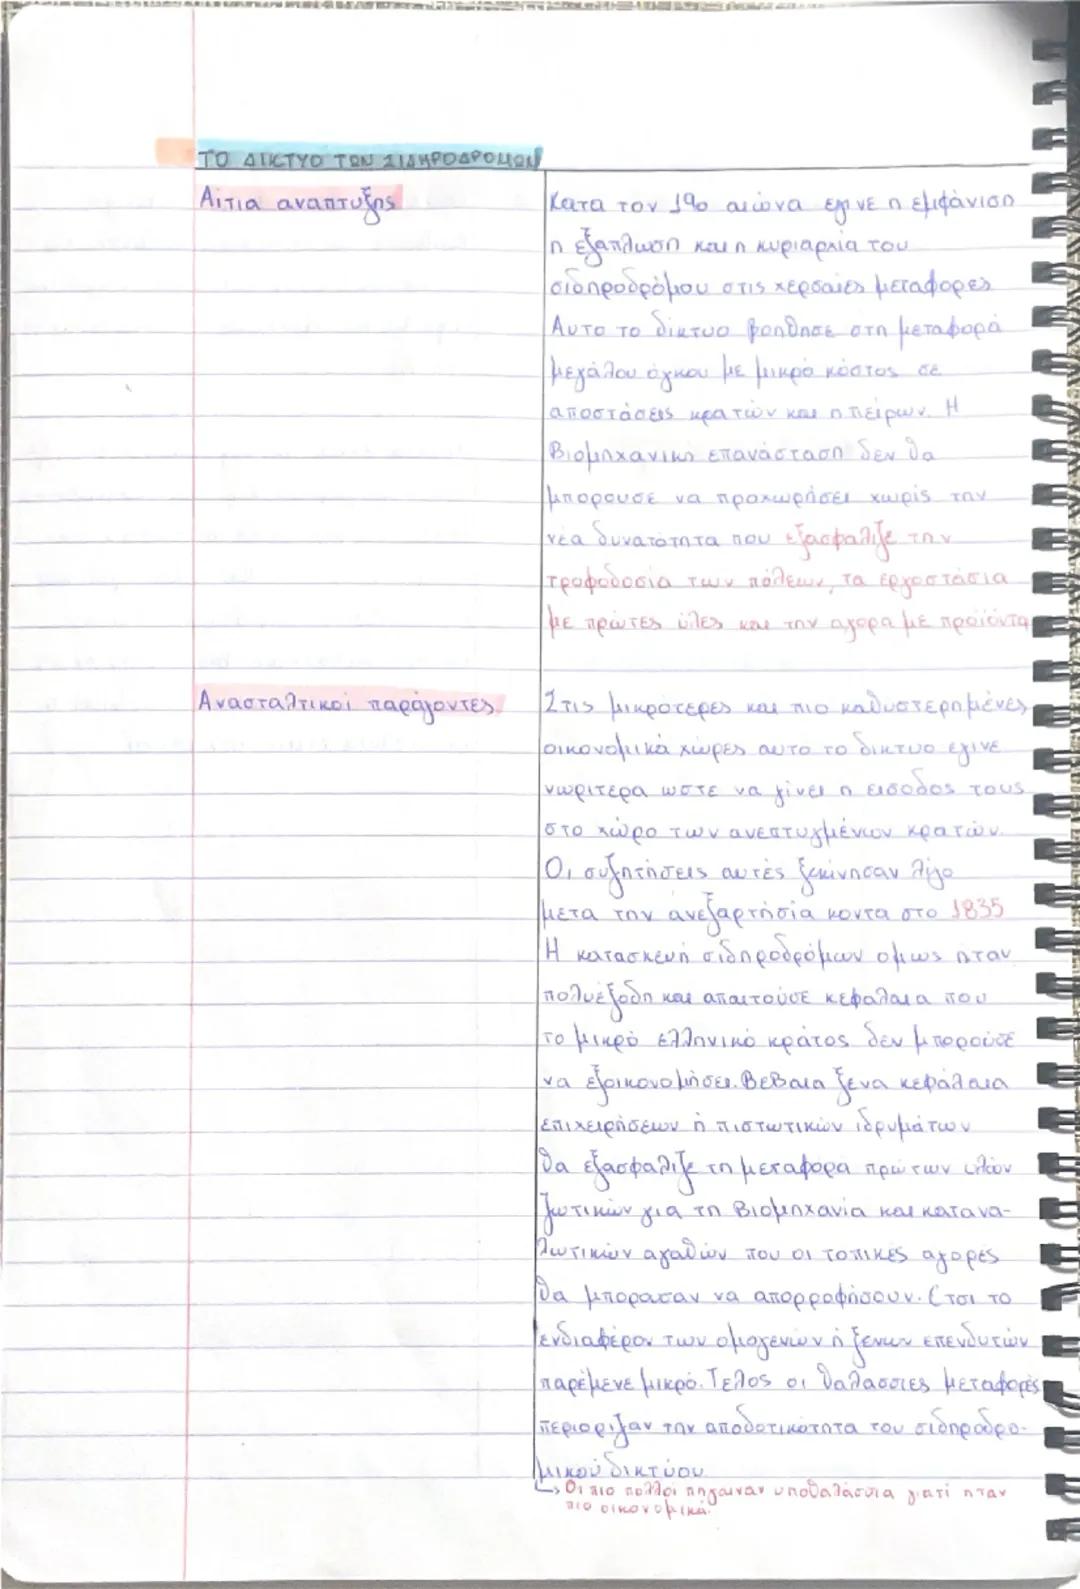 ΤΟ ΔΙΚΤΥΟ ΤΩΝ ΣΙΔΗΡΟΔΡΟΜΩΝ
Αίτια αναπτυξης
Κατα τον 19ο αιώνα εγινε η εμφάνιση
η εξαπλωση και η κυριαρχία του
σιδηροδρόμου στις χερσαίες μεταφορες
Αυτο το δίκτυο βοηθησε στη μεταφορά
μεγάλου όγκου με μικρό κόστος σε
αποστάσεις κρατών και ηπείρων. Η
Βιομηχανικη επανάσταση δεν θα
μπορουσε να προχωρήσει χωρίς την
νέα δυνατότητα που εξασφαλιζε την
τροφοδοσία των πόλεων, τα εργοστάσια
με πρώτες ύλες και την αγορα με προϊόντα
Ανασταλτικοί παράγοντες
Στις μικρότερες και πιο καθυστερημένες
οικονομικά χώρες αυτο το δικτυο εγινε
νωρίτερα ωστε να γίνει η εισοδος τους
στο χώρο των ανεπτυγμένων κρατών.
Οι συζητήσεις αυτές ξεκίνησαν λίγο
μετα την ανεξαρτησία κοντα στο 1835
Η κατασκευή σιδηροδρόμων ομως ηταν
πολυέξοδη και απαιτούσε κεφαλαια που
το μικρό ελληνικό κράτος δεν μπορούσε
να εξοικονομήσει. Βεβαια ξενα κεφάλαια
επιχειρήσεων ή πιστωτικών ιδρυμάτων
θα εξασφαλιζε τη μεταφορά πρώτων υλών
ζωτικών για τη Βιομηχανία και κατανα-
λωτικών αγαθών που οι τοπικές αγορές
θα μπορουσαν να απορροφήσουν. Ετσι το
ενδιαφέρον των ομογενών ή ξενων επενδυτών
παρέμενε μικρό. Τελος οι θαλασσιες μεταφορές
περιοριζαν την αποδοτικότητα του σιδηροδρο-
μικού δικτύου
↳ Οι πιο πολλοί πηγαιναν υποθαλάσσια γιατί ηταν
πιο οικονομικά.